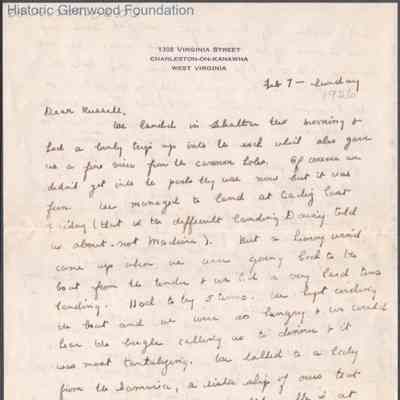 Historic Glenwood Foundation
1308 VIRGINIA STREET
CHARLESTON-ON-KANAWHA
WEST VIRGINIA
Feb 7 - Sunday
1926
Dear Russell,
We landed in this morning &
had a lovely trip up into the which also gave
us a fine view from the cannon holes. Of course we
didn't get into the parts they use now but it was
fun. We managed to land at Cadiz last
Friday (that is the difficult landing Dainy told
us about - not Madeira). But a wind
came up when we were going back to the
boat from the tender & we had a very hard time
landing. Had to try 5 times. We kept circling
the boat and we were so hungry & we could
hear the bugle calling us to dinner & it
was most tantalizing. We talked to a lady
from the Samaria, a sister ship of ours that
is at